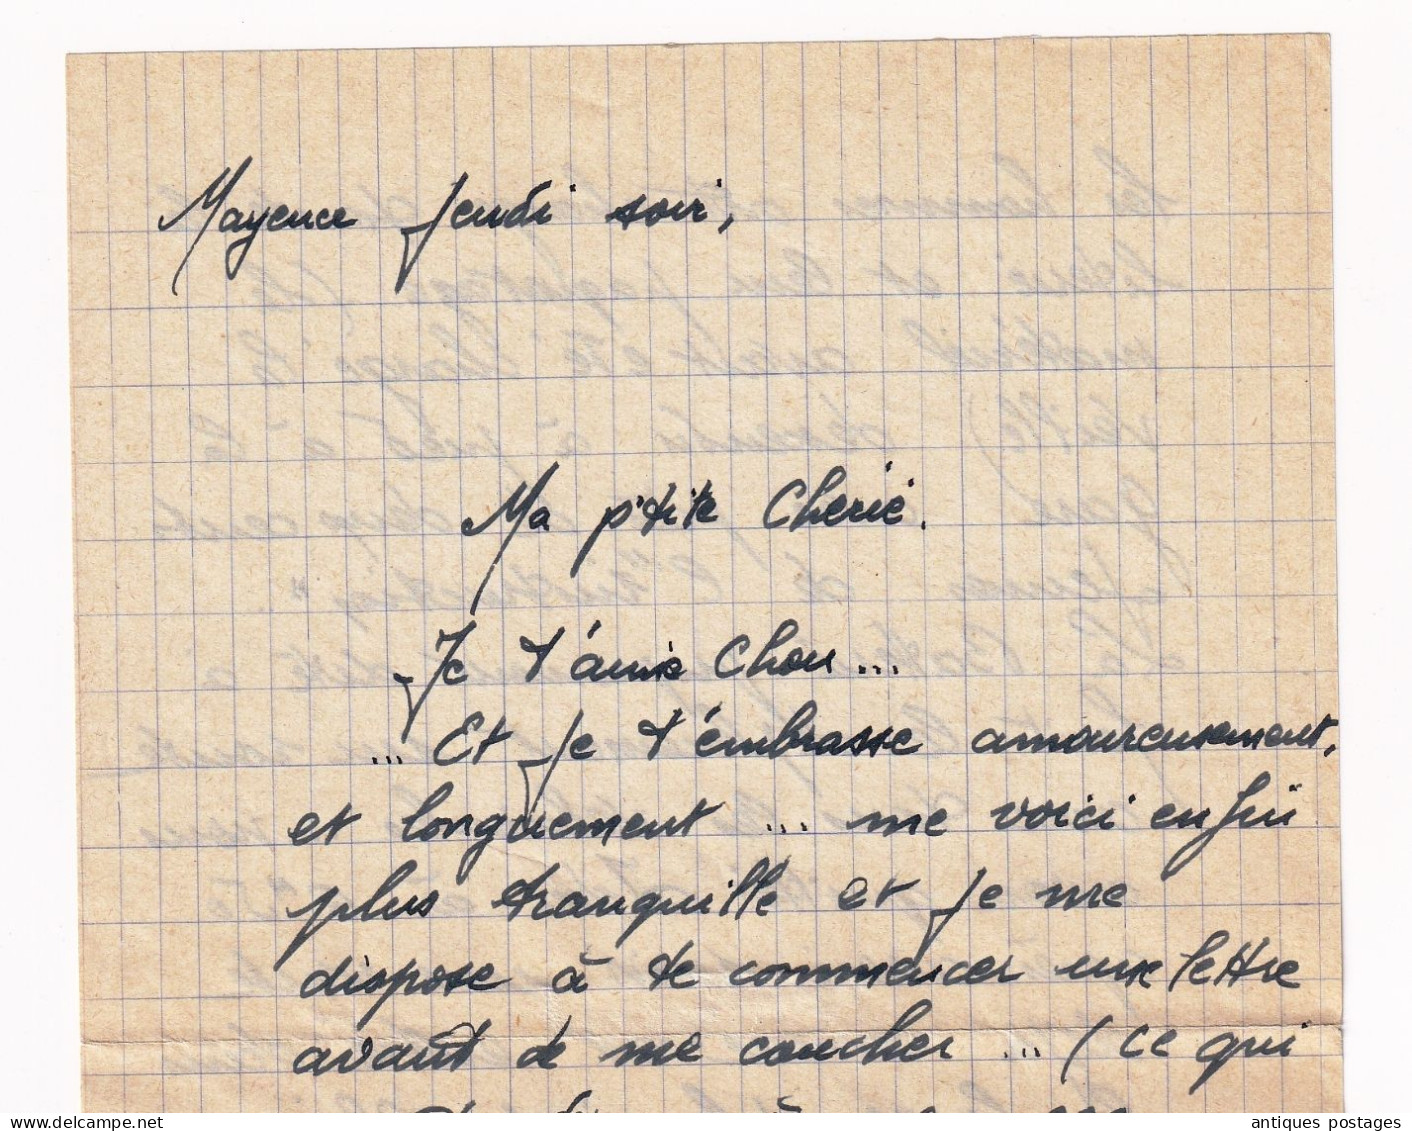 Mayence Jeudi soir,
Ma p'tite Cherie.
Je t'aime Chou...
... Et je t'embrasse amoureusement,
et longuement ... me voici enfin
plus tranquille et je me
dispose à te commencer une lettre
avant de me coucher ... ( ce qui
antiques postages